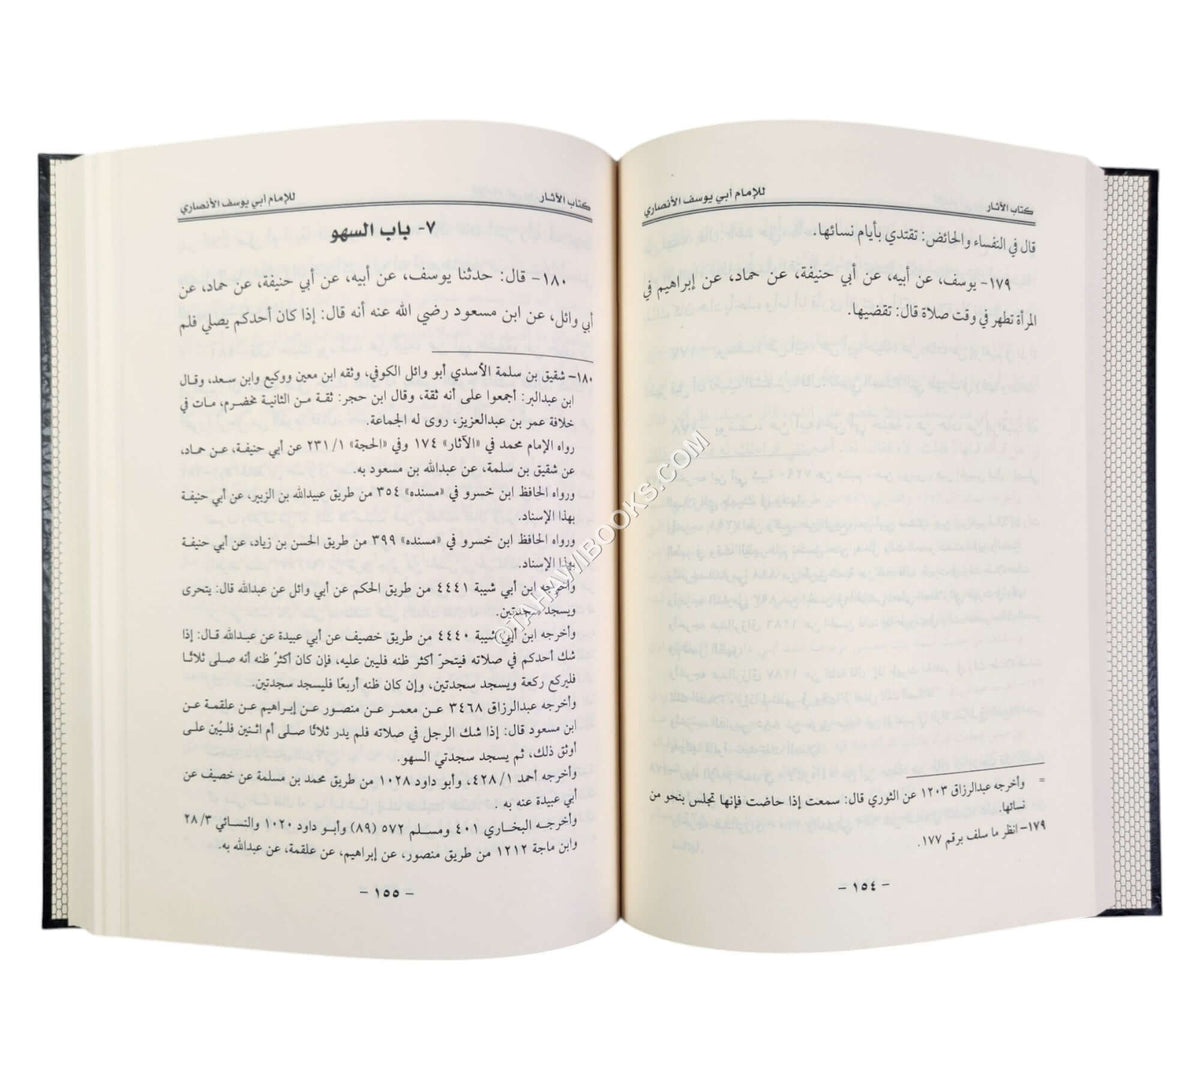 كتاب الآثار للإمام أبي يوسف الأنصاري
قال في النفساء والحائض: تقتدي بأيام نسائها.
١٧٩- يوسف، عن أبيه، عن أبي حنيفة، عن حماد، عن إبراهيم في
المرأة تطهر في وقت صلاة قال: تقضيها.
= وأخرجه عبدالرزاق ١٢٠٣ عن الثوري قال: سمعت إذا حاضت فإنها تجلس بنحو من
نسائها.
١٧٩- انظر ما سلف برقم ١٧٧.
- ١٥٤ -
كتاب الآثار للإمام أبي يوسف الأنصاري
٧- باب السهو
١٨٠- قال: حدثنا يوسف، عن أبيه، عن أبي حنيفة، عن حماد، عن
أبي وائل، عن ابن مسعود رضي الله عنه أنه قال: إذا كان أحدكم يصلي فلم
١٨٠- شقيق بن سلمة الأسدي أبو وائل الكوفي، وثقه ابن معين ووكيع وابن سعد، وقال
ابن عبدالبر: أجمعوا على أنه ثقة، وقال ابن حجر: ثقة من الثانية مخضرم، مات في
خلافة عمر بن عبدالعزيز، روى له الجماعة.
رواه الإمام محمد في «الآثار» ١٧٤ وفي «الحجة» ٢٣١/١ عن أبي حنيفة، عن حماد،
عن شقيق بن سلمة، عن عبدالله بن مسعود به.
ورواه الحافظ ابن خسرو في «مسنده» ٣٥٤ من طريق عبيدالله بن الزبير، عن أبي حنيفة
بهذا الإسناد.
ورواه الحافظ ابن خسرو في «مسنده» ٣٩٩ من طريق الحسن بن زياد، عن أبي حنيفة
بهذا الإسناد.
وأخرجه ابن أبي شيبة ٤٤٤١ من طريق الحكم عن أبي وائل عن عبدالله قال: يتحرى
ويسجد سجدتين.
وأخرجه ابن أبي شيبة ٤٤٤٠ من طريق خصيف عن أبي عبيدة عن عبدالله قال: إذا
شك أحدكم في صلاته فيتحرّ أكثر ظنه فليبن عليه، فإن كان أكثرُ ظنه أنه صلى ثلاثًا
فليركع ركعة ويسجد سجدتين، وإن كان ظنه أربعًا فليسجد سجدتين.
وأخرجه عبدالرزاق ٣٤٦٨ عن معمر عن منصور عن إبراهيم عن علقمة عن
ابن مسعود قال: إذا شك الرجل في صلاته فلم يدر ثلاثًا صلى أم اثنين فليُبن على
أوثق ذلك، ثم يسجد سجدتي السهو.
وأخرجه أحمد ٤٢٨/١، وأبو داود ١٠٢٨ من طريق محمد بن سلمة عن خصيف عن
أبي عبيدة عنه به.
وأخرجه البخاري ٤٠١ ومسلم ٥٧٢ (٨٩) وأبو داود ١٠٢٠ والنسائي ٢٨/٣
وابن ماجة ١٢١٢ من طريق منصور، عن إبراهيم، عن علقمة، عن عبدالله به.
- ١٥٥ -
©TAHAWIBOOKS.COM